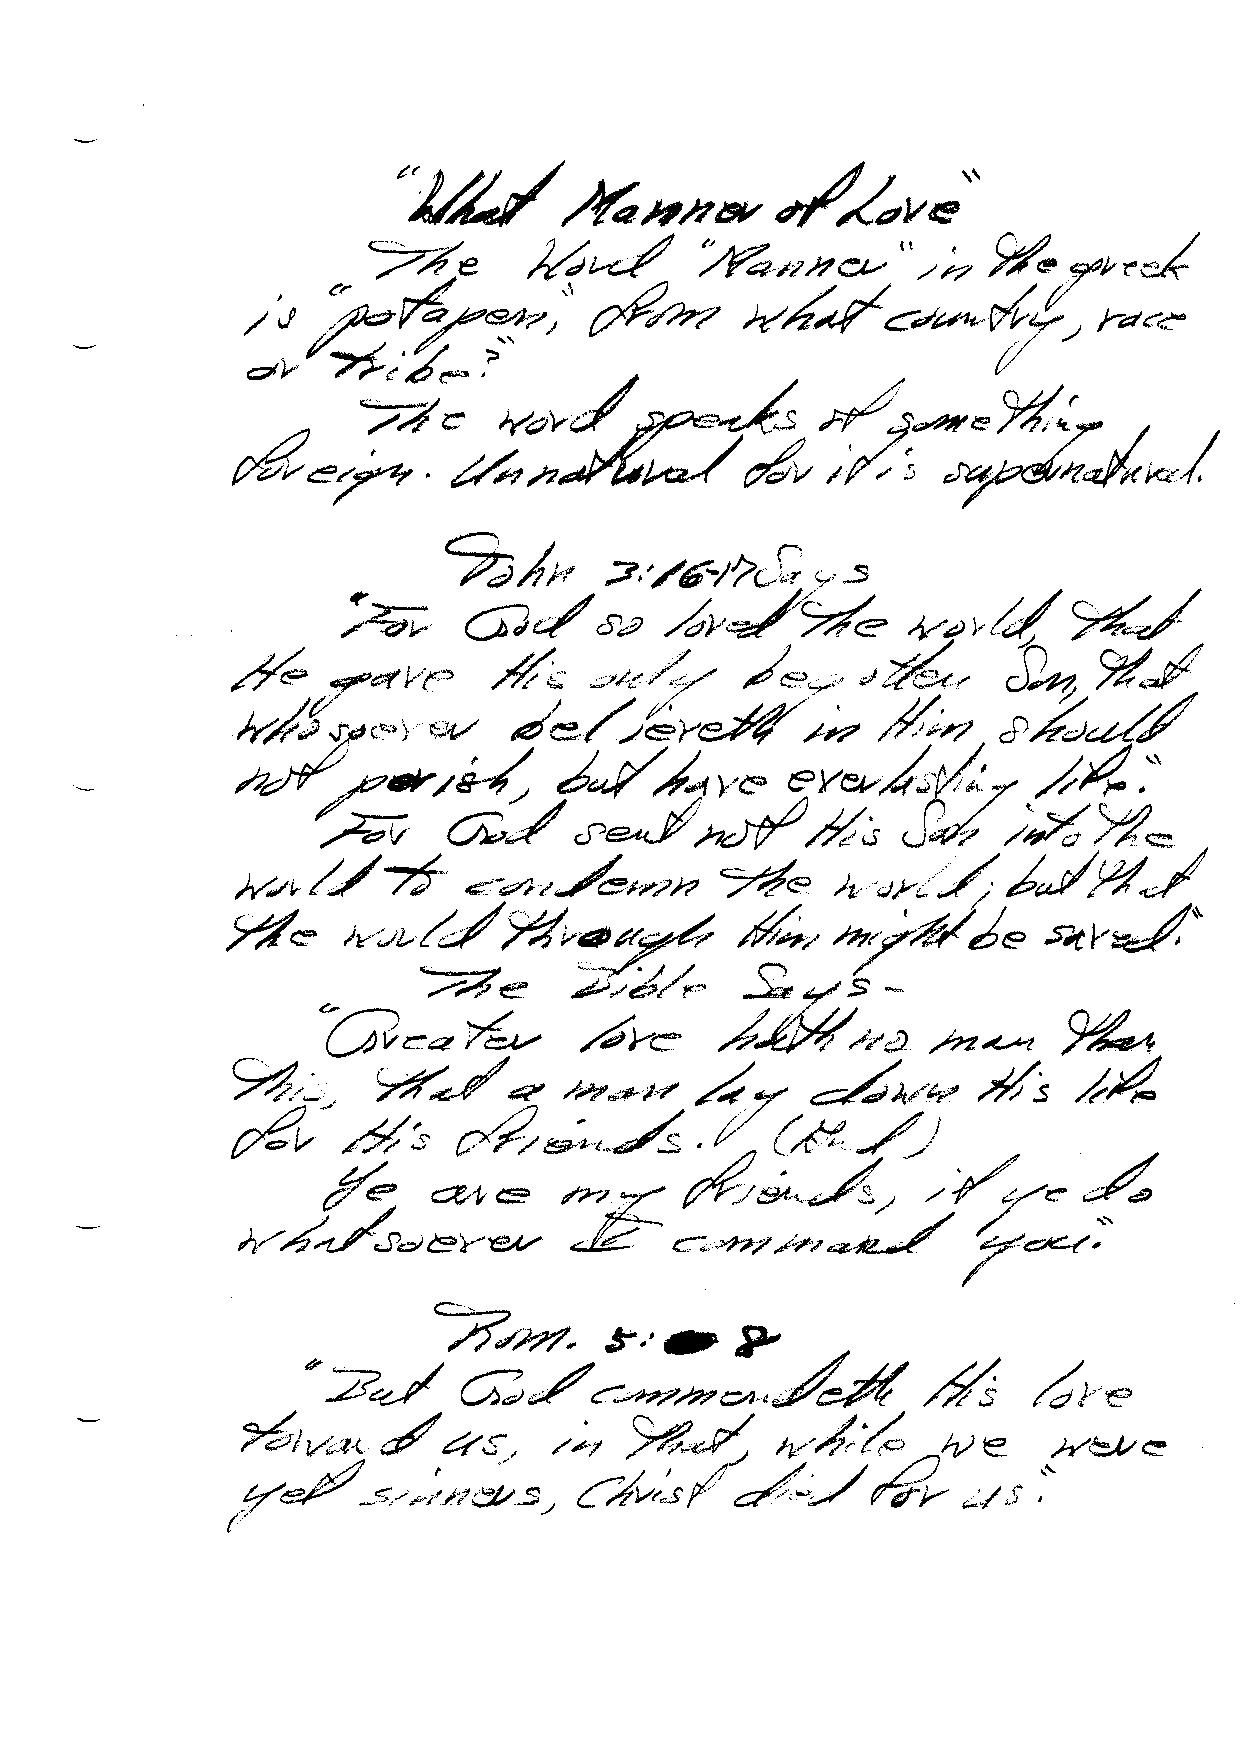 "What Manner of Love"
The Word "Manner" in the greek
is "potapen", from what country, race
or tribe?"
The word speaks of something
foreign. Unnatural for it is supernatural.
John 3:16-17 Says
"For God so loved the world, that
He gave His only begotten Son, that
whosoever believeth in Him should
not perish, but have everlasting life."
For God sent not His Son into the
world to condemn the world; but that
the world through Him might be saved."
The Bible Says-
"Greater love hath no man than
this, that a man lay down His life
for His friends. (End)
Ye are my friends, if ye do
whatsoever I command you."
Rom. 5: 8
"But God commendeth His love
toward us, in that, while we were
yet sinners, Christ died for us."